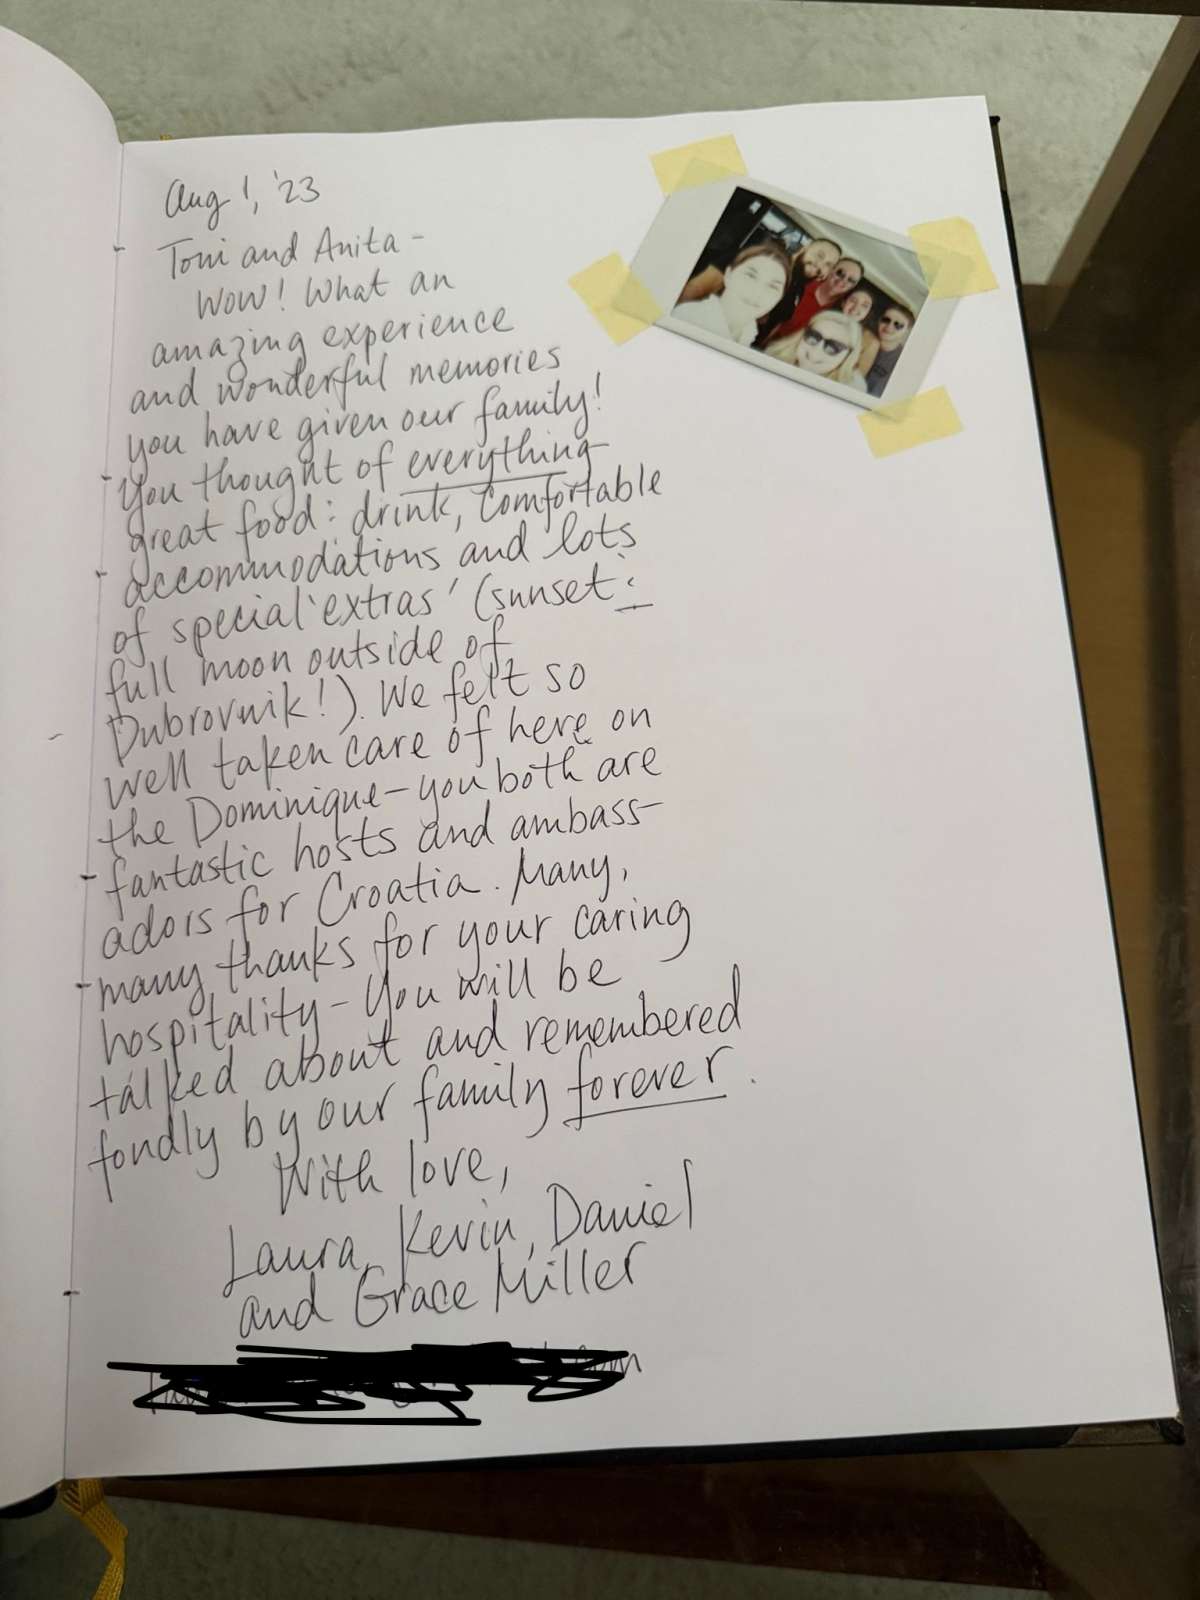 Aug 1, '23
Toni and Anita -
Wow! What an
amazing experience
and wonderful memories
you have given our family!
You thought of everything -
great food: drink, comfortable
accommodations and lots
of special 'extras' (sunset :
full moon outside of
Dubrovnik!). We felt so
well taken care of here on
the Dominique - you both are
fantastic hosts and ambass-
adors for Croatia. Many,
many thanks for your caring
hospitality - You will be
talked about and remembered
fondly by our family forever.
With love,
Laura, Kevin, Daniel
and Grace Miller